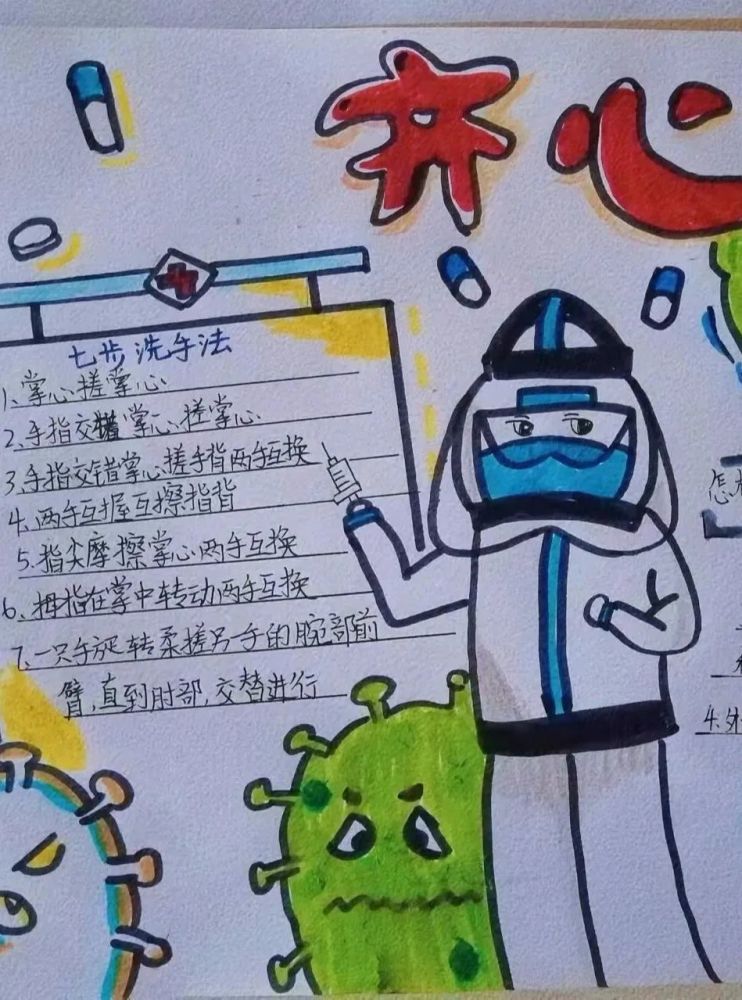 开心
七步洗手法
1、掌心搓掌心
2、手指交错掌心搓掌心
3、手指交错掌心搓手背两手互换
4、两手互握互擦指背
5、指尖摩擦掌心两手互换
6、拇指在掌中转动两手互换
7、一只手旋转柔搓另一手的腕部前
臂,直到肘部,交替进行
怎
4、外